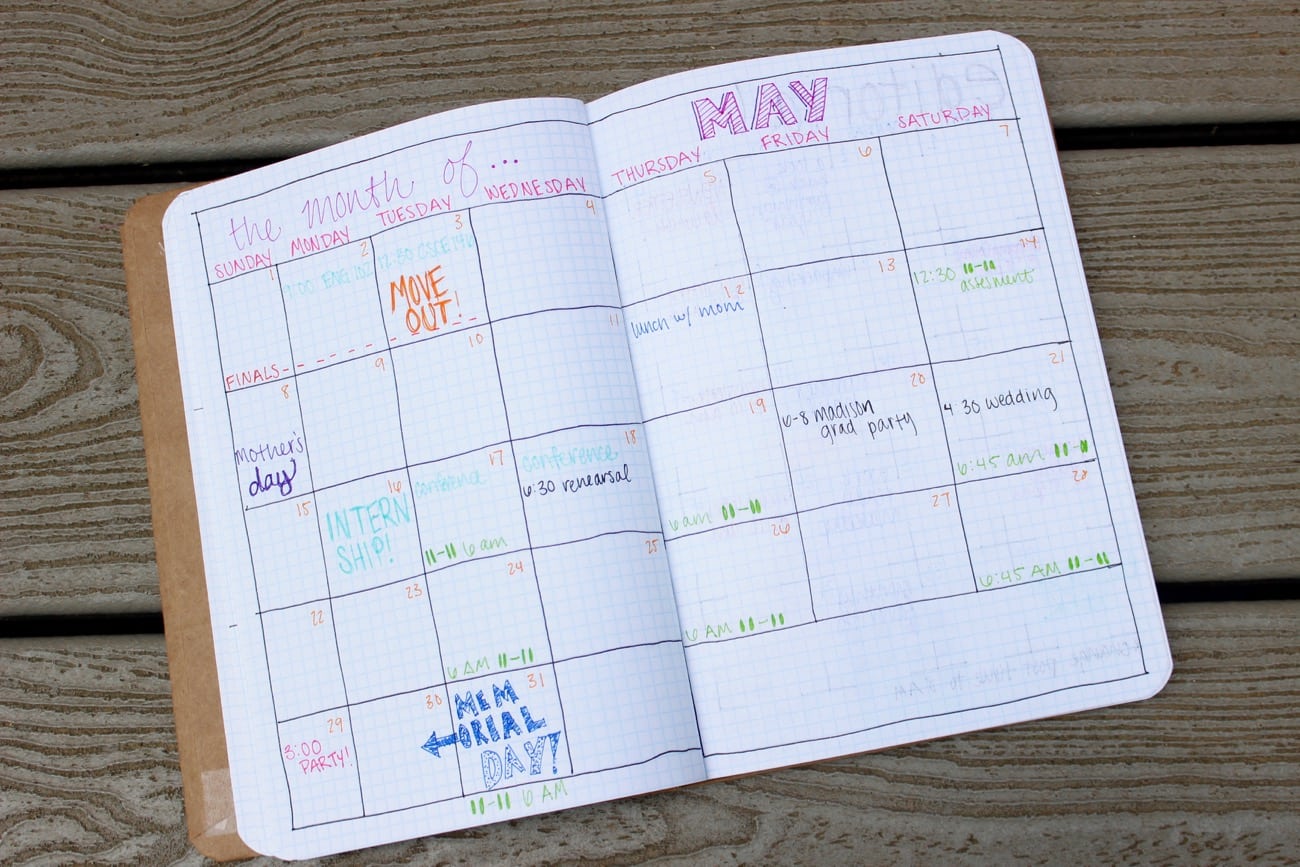 the month of...
MAY
SUNDAY MONDAY TUESDAY WEDNESDAY THURSDAY FRIDAY SATURDAY
1 2 3 4 5 6 7
9:00 ENG 102 12:30 CSCE 146
MOVE
OUT!
FINALS
8 9 10 11 12 13 14
mother's
day
lunch w/ mom
12:30
assesment
15 16 17 18 19 20 21
INTERN
SHIP!
conference
6 am
conference
6:30 rehearsal
6 am
6-8 madison
grad party
4:30 wedding
6:45 am
22 23 24 25 26 27 28
6 AM
6 AM
6:45 AM
29 30 31
3:00
PARTY!
MEM
ORIAL
DAY!
6 AM
editor
change post time to 8 AM